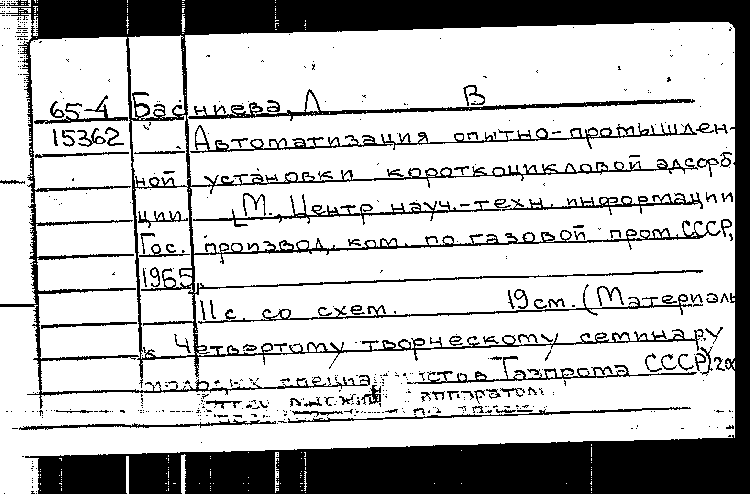 65-4 Басниева, Л В
15362 Автоматизация опытно-промышлен-
ной установки короткоцикловой адсорб-
ции. [М., Центр науч.-техн. информации
Гос. произвд. ком. по газовой пром. СССР,
1965].
11 с. со схем. 19 см. (Материалы
к Четвертому творческому семинару
молодых специалистов Газпрома СССР). 200
аппаратом